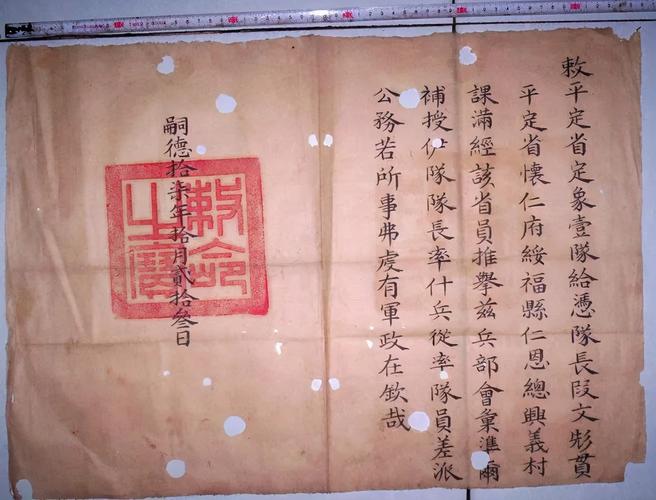 敕平定省定象壹隊給憑隊長段文彪貫
平定省懷仁府綏福縣仁恩總興義村
課滿經該省員推擧茲兵部會彙準爾
補授伊隊隊長率什兵從率隊員差派
公務若所事弗虔有軍政在欽哉
嗣德拾柒年拾月貳拾叄日
敕命之寶